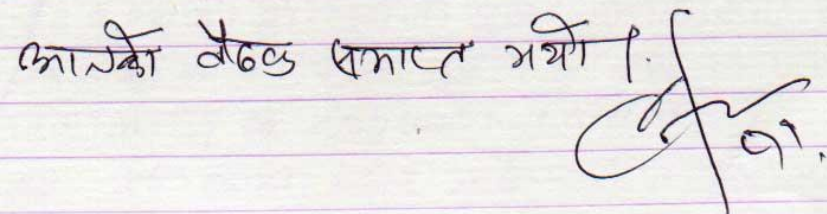 आजको बैठक समाप्त भयो।